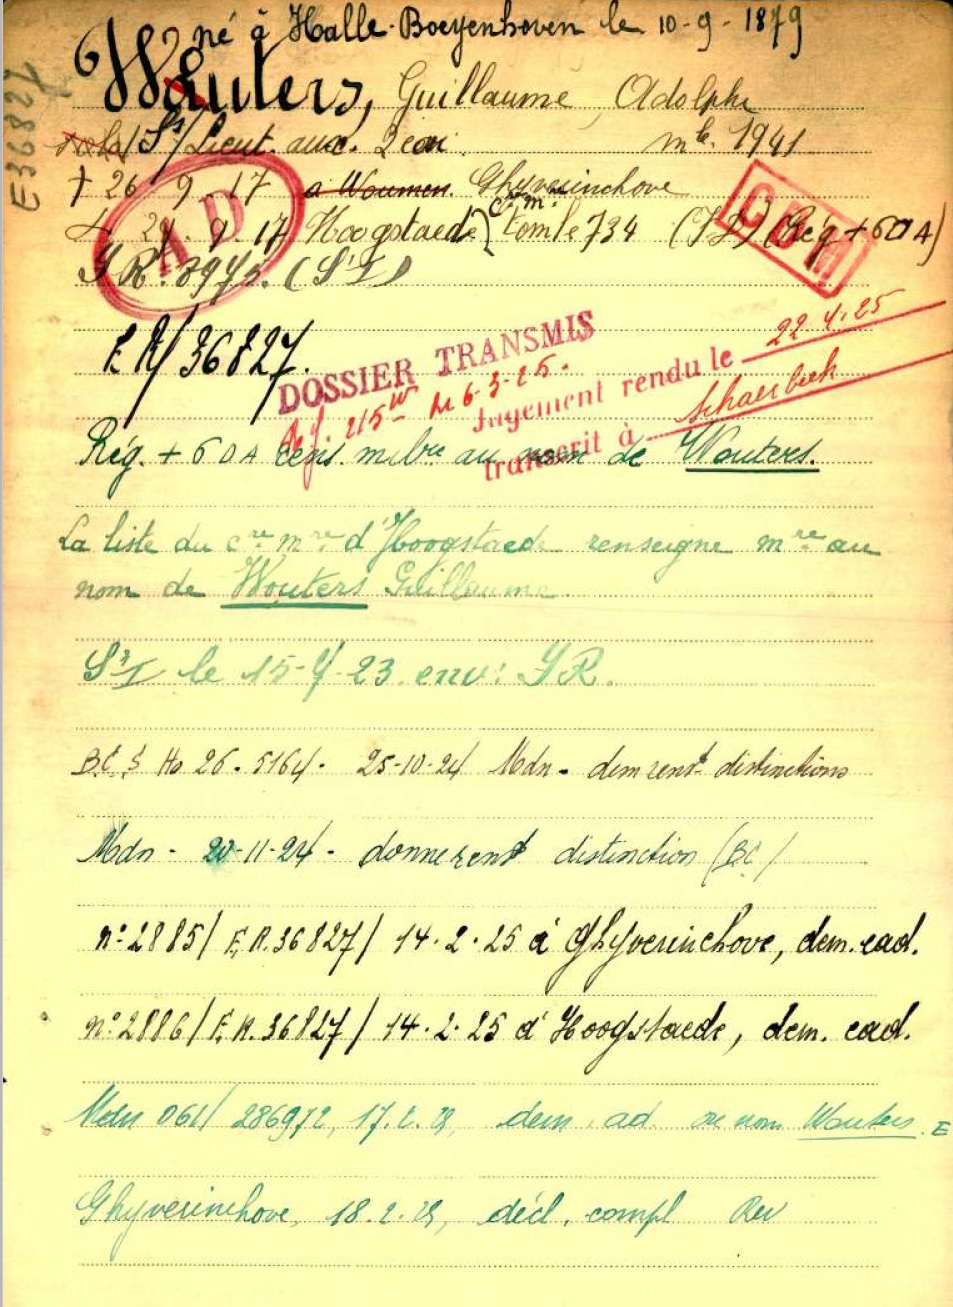 né à Halle-Boeyenhoven le 10-9-1879
Wouters, Guillaume, Adolphe
E36827
Sˢ/Lieut. aux. 2 car mˡᵉ 1941
+ 26.9.17 à Woumen. Ghyverinchove
29.9.17 Hoogstaede cʳᵉ mʳᵉ tombe 734 (Rég + 60A)
AD
CDM
E.R/36827.
DOSSIER TRANSMIS
6-3-25.
Jugement rendu le 22.4.25
transcrit à Schaerbeek
Rég. + 60A rens. mbre au nom de Wouters.
La liste du cʳᵉ mʳᵉ d'Hoogstaede renseigne mʳᵉ au
nom de Wouters Guillaume
le 15-7-23. env:
B.C.S Ho 26.5164. 25-10-24 Mdn - dem rensᵗ distinctions
Mdn - 20-11-24 - donne rensᵗ distinction (BC)
n° 2885/E.R.36827/ 14.2.25 à Ghyverinchove, dem. ead.
n° 2886/E.R.36827/ 14.2.25 à Hoogstaede, dem. ead.
Mdn 061/286972, 17.2.25, dem. ad au nom Wouters. E
Ghyverinchove, 18.2.25, décl. compl Rev